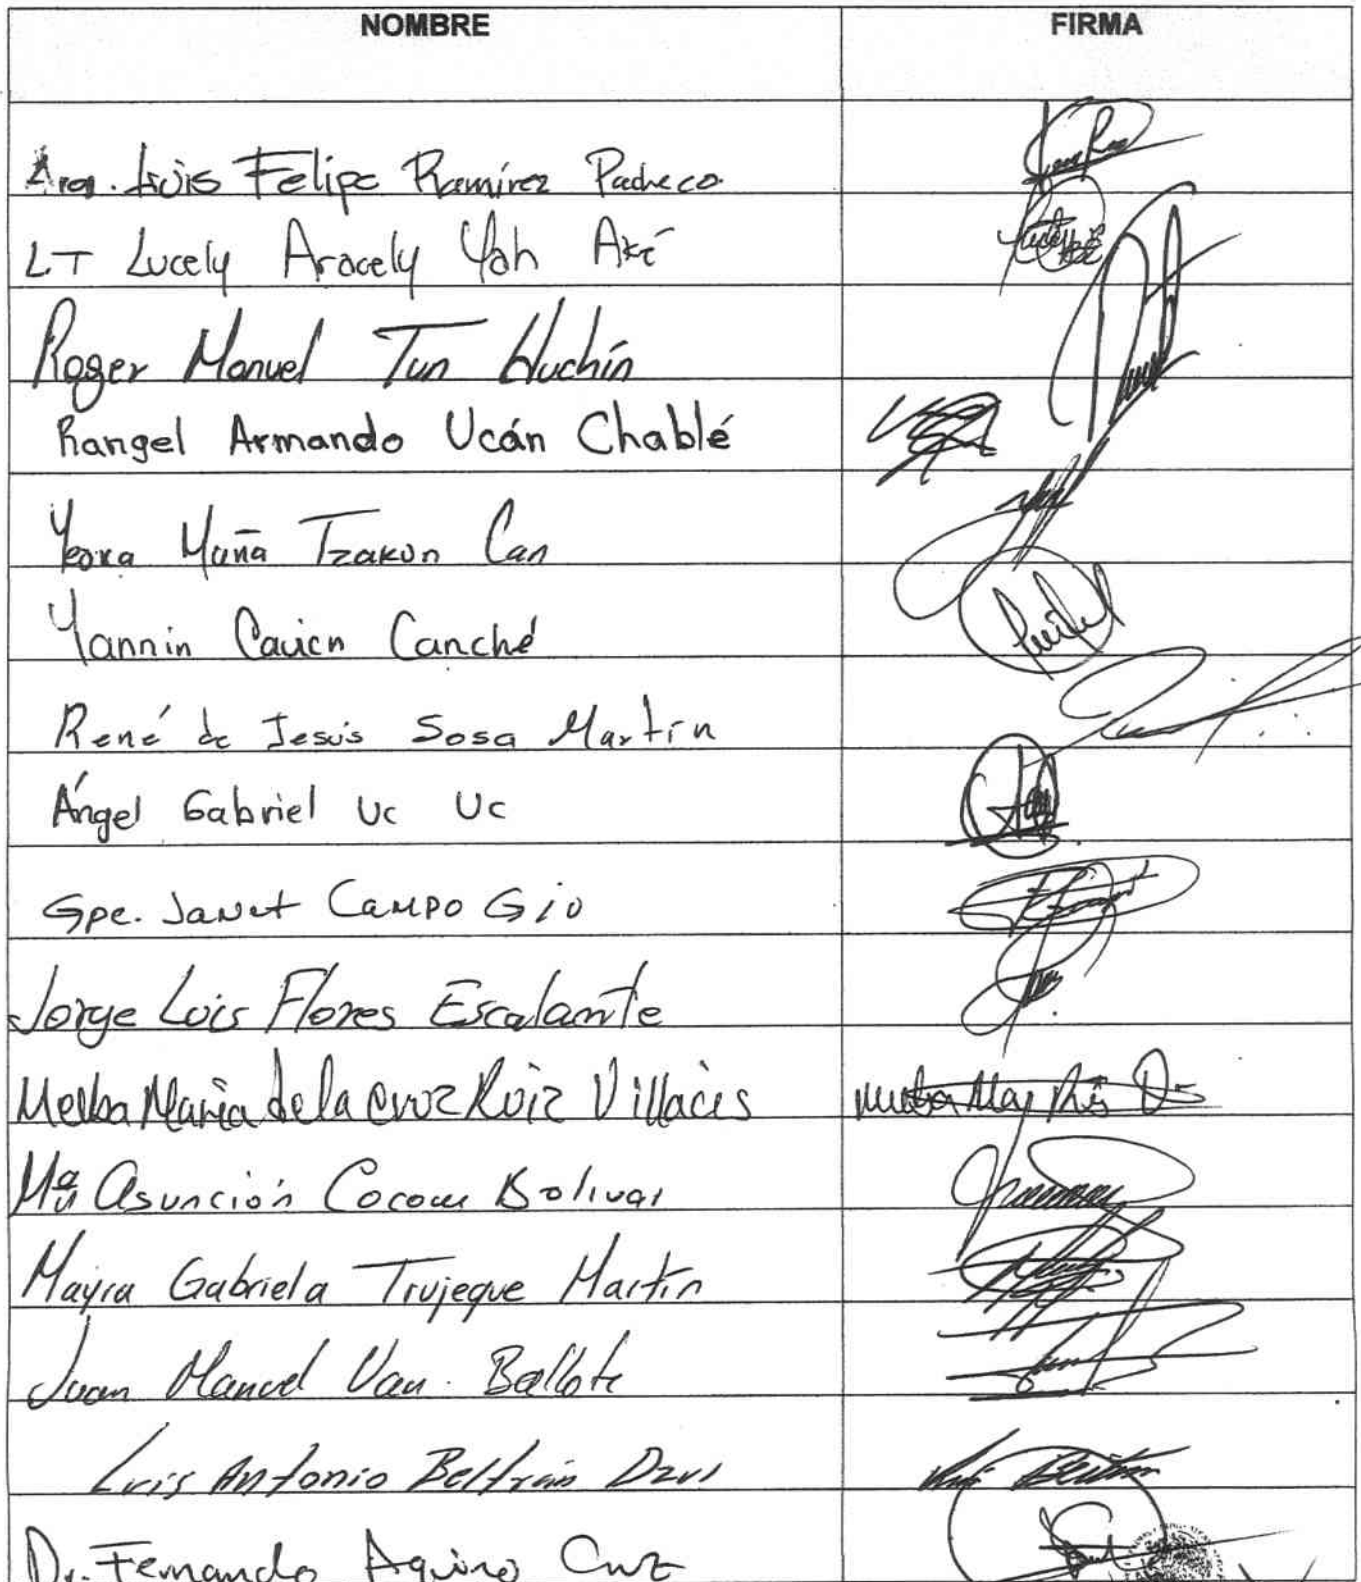 NOMBRE FIRMA
Arq. Luis Felipe Ramírez Pacheco
LT Lucely Aracely Yah Aké
Roger Manuel Tun Huchín
Rangel Armando Ucán Chablé
María Tzakun Can
Yannin Cauich Canché
René de Jesús Sosa Martín
Ángel Gabriel Uc Uc
Gpe. Janet Campo Gio
Jorge Luis Flores Escalante
Melba María de la Cruz Ruiz Villacis
Mª Asunción Cocom Bolivar
Mayra Gabriela Trujeque Martín
Juan Manuel Ballote
Luis Antonio Beltrán Dzul
Dr. Fernando Aquino Cruz